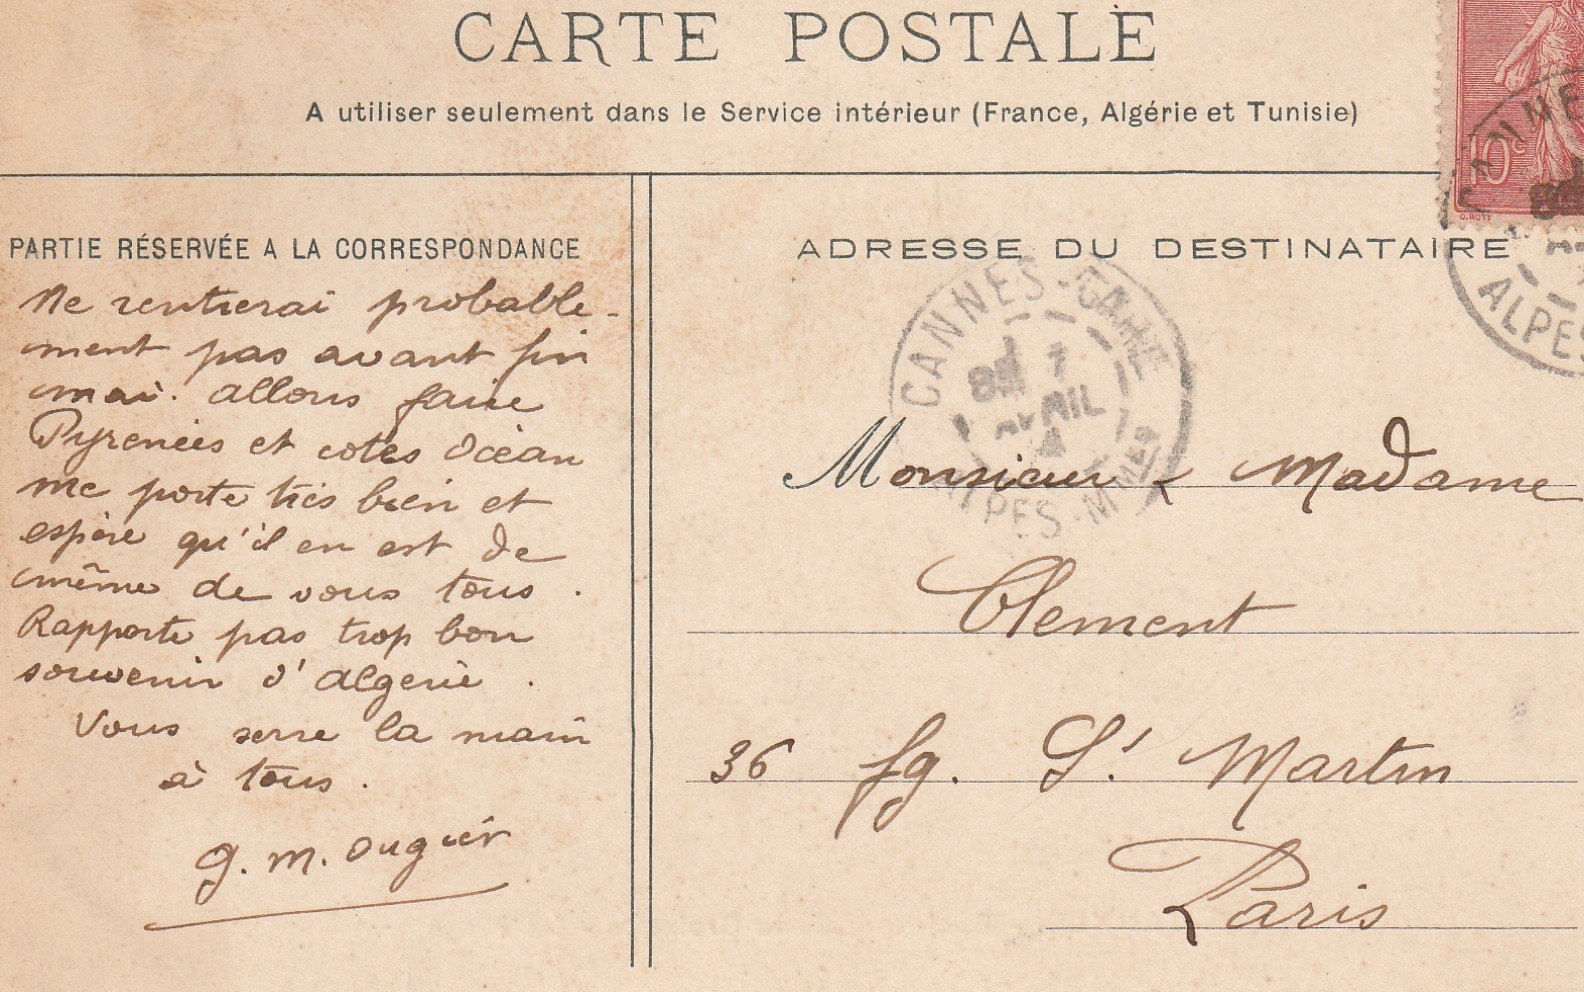 CARTE POSTALE
A utiliser seulement dans le Service intérieur (France, Algérie et Tunisie)
PARTIE RÉSERVÉE A LA CORRESPONDANCE
Ne rentrerai probable-
ment pas avant fin
mai. allons faire
Pyrenées et cotes Océan
me porte très bien et
espère qu'il en est de
même de vous tous.
Rapporte pas trop bon
souvenir d'algerie.
Vous serre la main
à tous.
G. M. Ougier
ADRESSE DU DESTINATAIRE
Monsieur & Madame
Clement
36 fg. St Martin
Paris
10c
O.ROTY
CANNES
ALPES
CANNES-GARE
AVRIL
ALPES-MMES